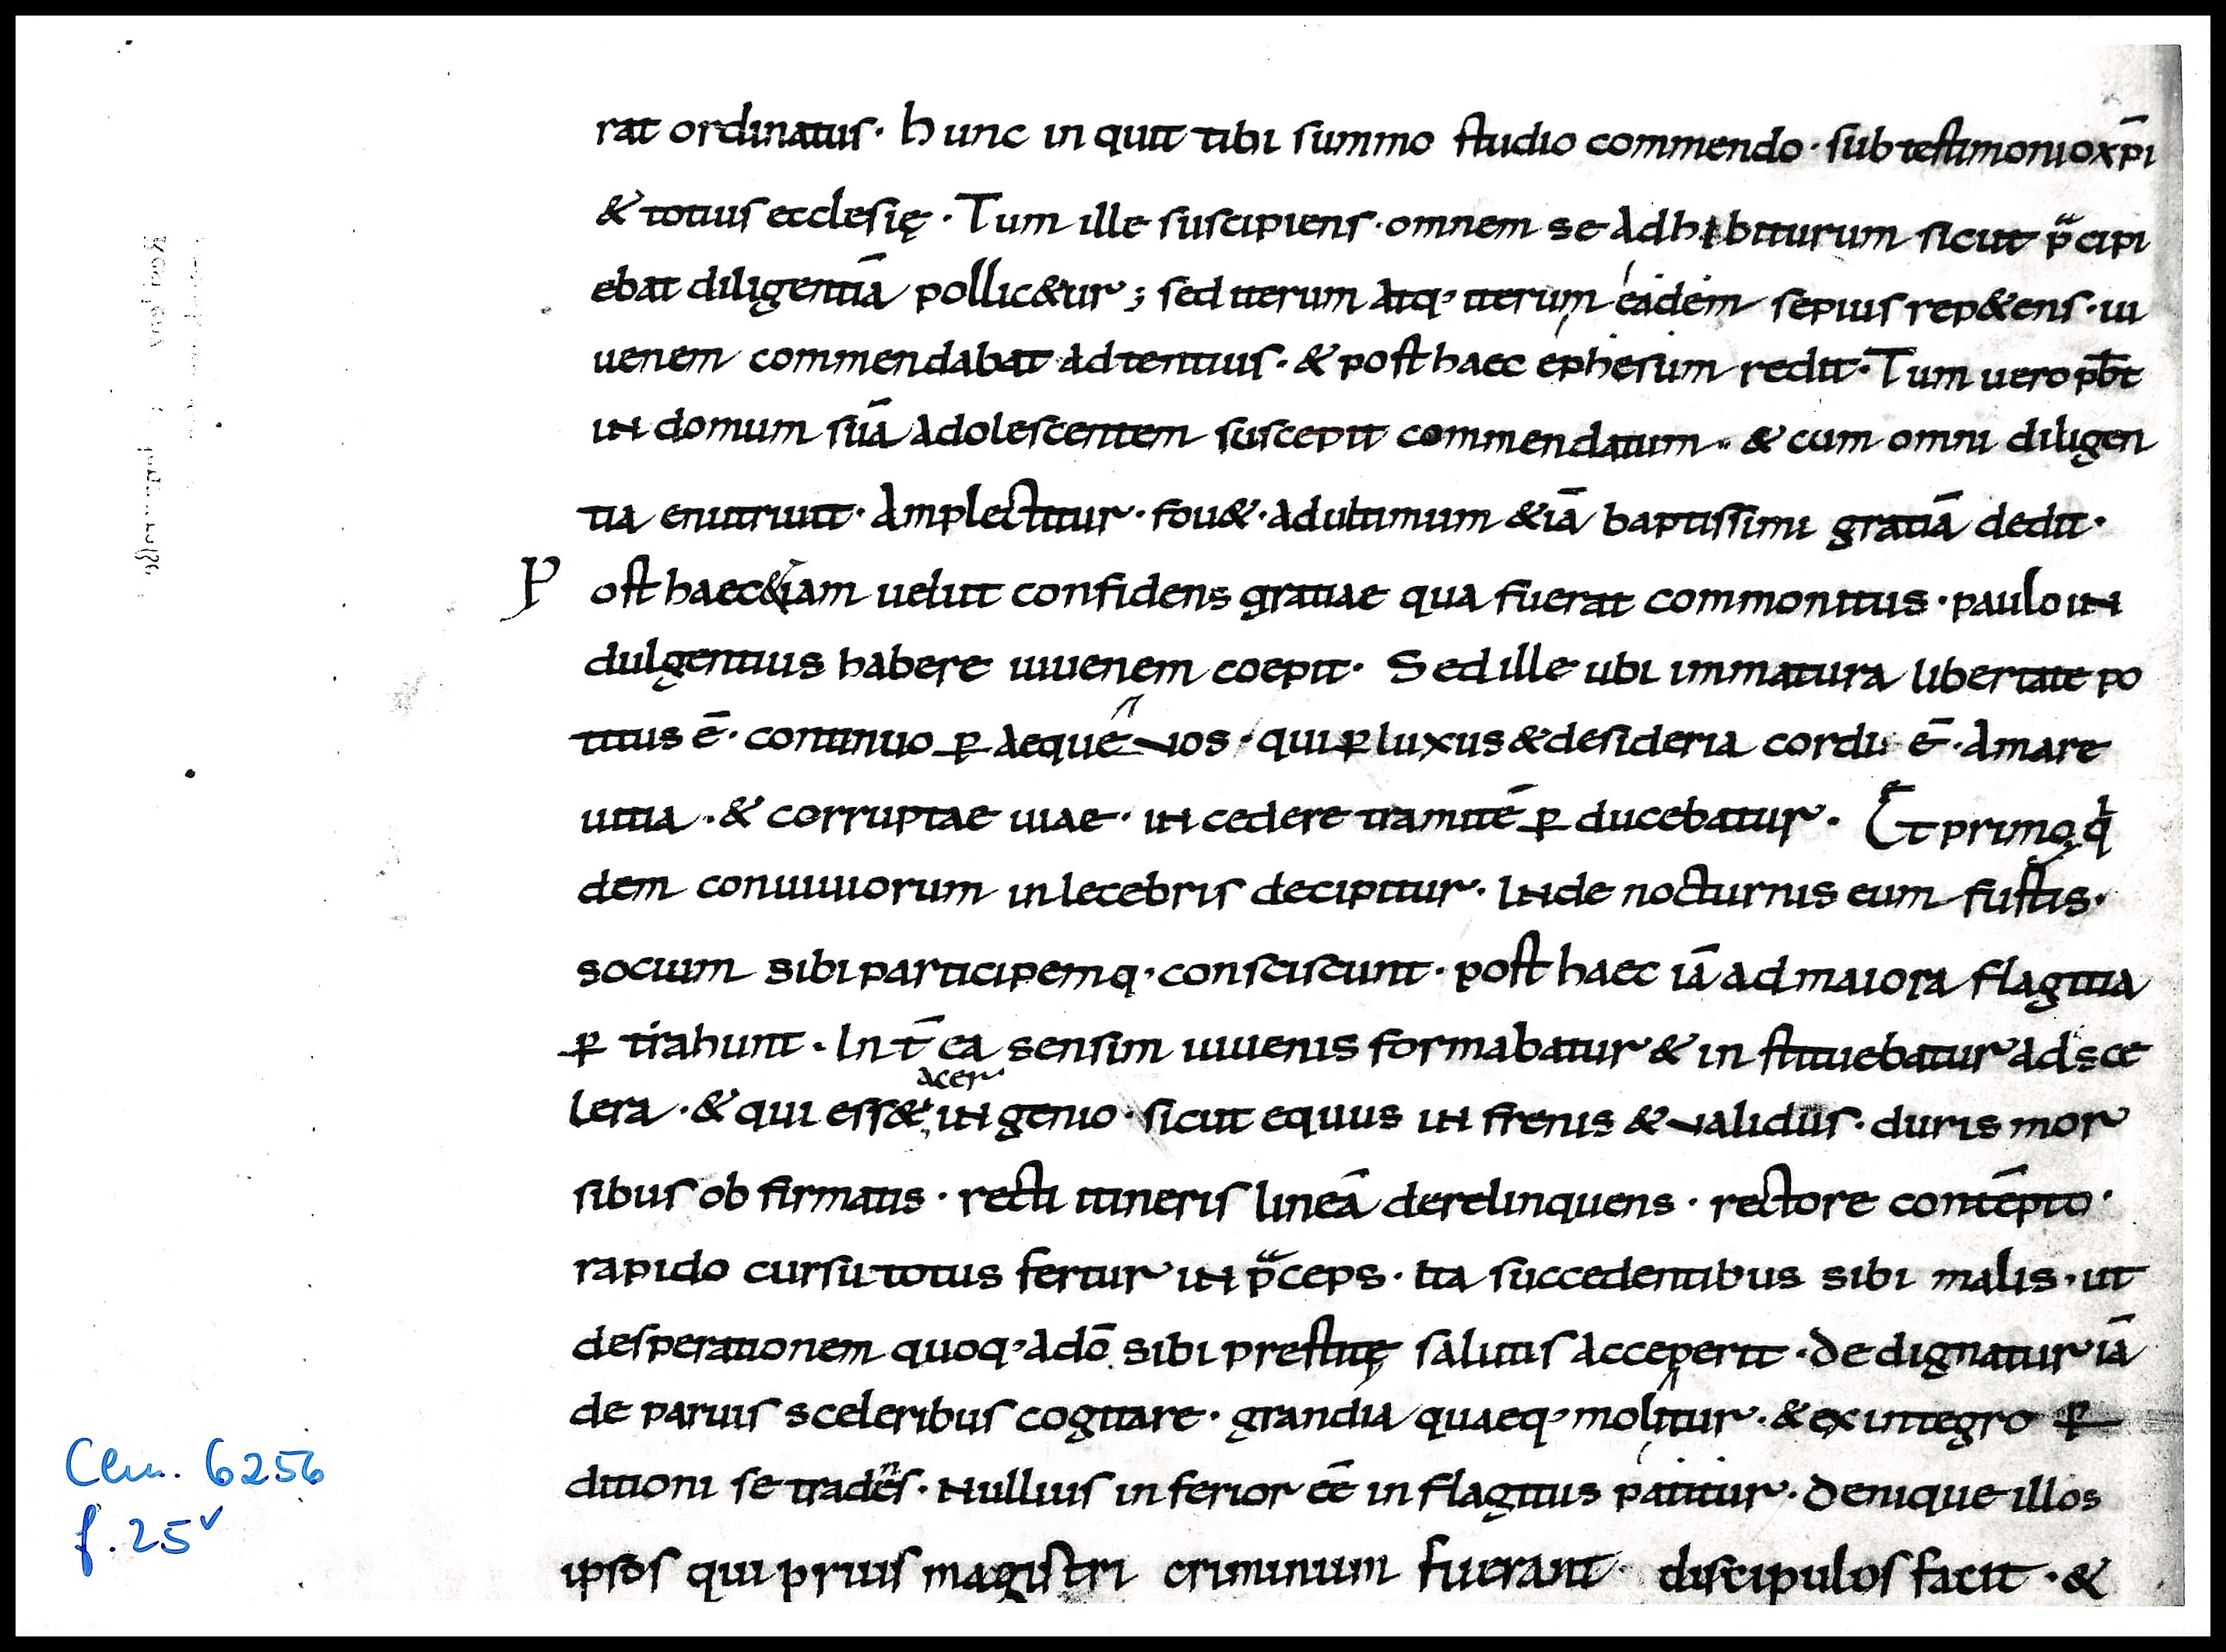 rat ordinatus· hunc in quit tibi summo studio commendo· sub testimonio xp̄i
& totius ecclesię· Tum ille suscipiens· omnem se adhibiturum sicut p̄cipi
ebat diligentiā pollic&ur; sed iterum atq; iterum eadem sepius rep&ens· iu
uenem commendabat adtentius· & post haec ephesum redit· Tum uero pb̄t
in domum suā adolescentem suscepit commendatum· & cum omni diligen
tia enutriuit· Amplectitur· fou&· adultimum &iā baptissimi gratiā dedit·
Post haec &iam uelut confidens gratiae qua fuerat commonitus· paulo in
dulgentius habere iuuenem coepit· Sed ille ubi immatura libertate po
titus ē· continuo ꝑ aequeuos· qui ꝑ luxus & desideria cordi ē· Amare
uitia· & corruptae uiae· in cedere tramitē ꝑ ducebatur· Et primo q̇
dem conuiuiorum inlecebris decipitur· Inde nocturnis eum fustis·
socium sibi participemq; consciscunt· post haec iā ad maiora flagitia
ꝑ trahunt· Int̄ ea sensim iuuenis formabatur & in stituebatur ad sce
lera· & qui ess& acer in genio· sicut equus in frenis & ualidus· duris mor
sibus ob firmatis· recti itineris lineā derelinquens· rectore contēpto·
rapido cursu totus fertur in p̄ceps· Ita succedentibus sibi malis· ut
desperationem quoq; ad ō sibi prestitę salutis acceperit· Dedignatur iā
de paruis sceleribus cogitare· grandia quaeq; molitur· & ex integro ꝑ
ditioni se tradēs· Nullius in ferior eē in flagitiis patitur· Denique illos
ipsos qui prius magistri criminum fuerant· discipulos facit· &
Clm. 6256
f. 25v